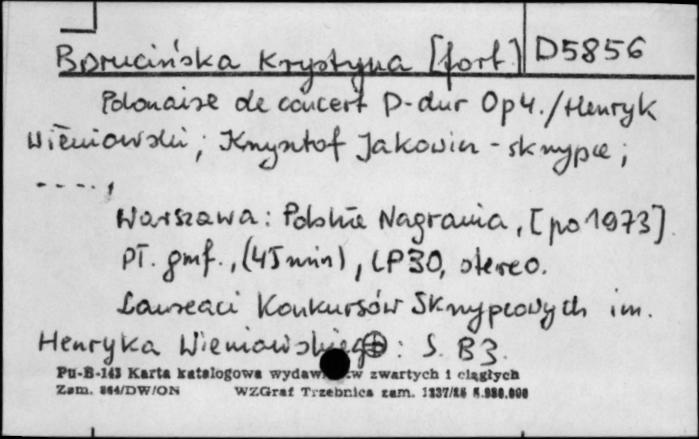 Borucińska Krystyna [fort.] D5856
Polonaise de concert D-dur Op 4. / Henryk
Wieniawski; Krzysztof Jakowicz - skrzypce;
- - - -,
Warszawa: Polskie Nagrania, [po 1973]
Pł. gmf., (45 min), LP30, stereo.
Laureaci Konkursów Skrzypcowych im.
Henryka Wieniawskiego: S. B3.
Pu-B-143 Karta katalogowa zwartych i ciągłych
Zam. 864/DW/ON WZGraf Trzebnica zam.